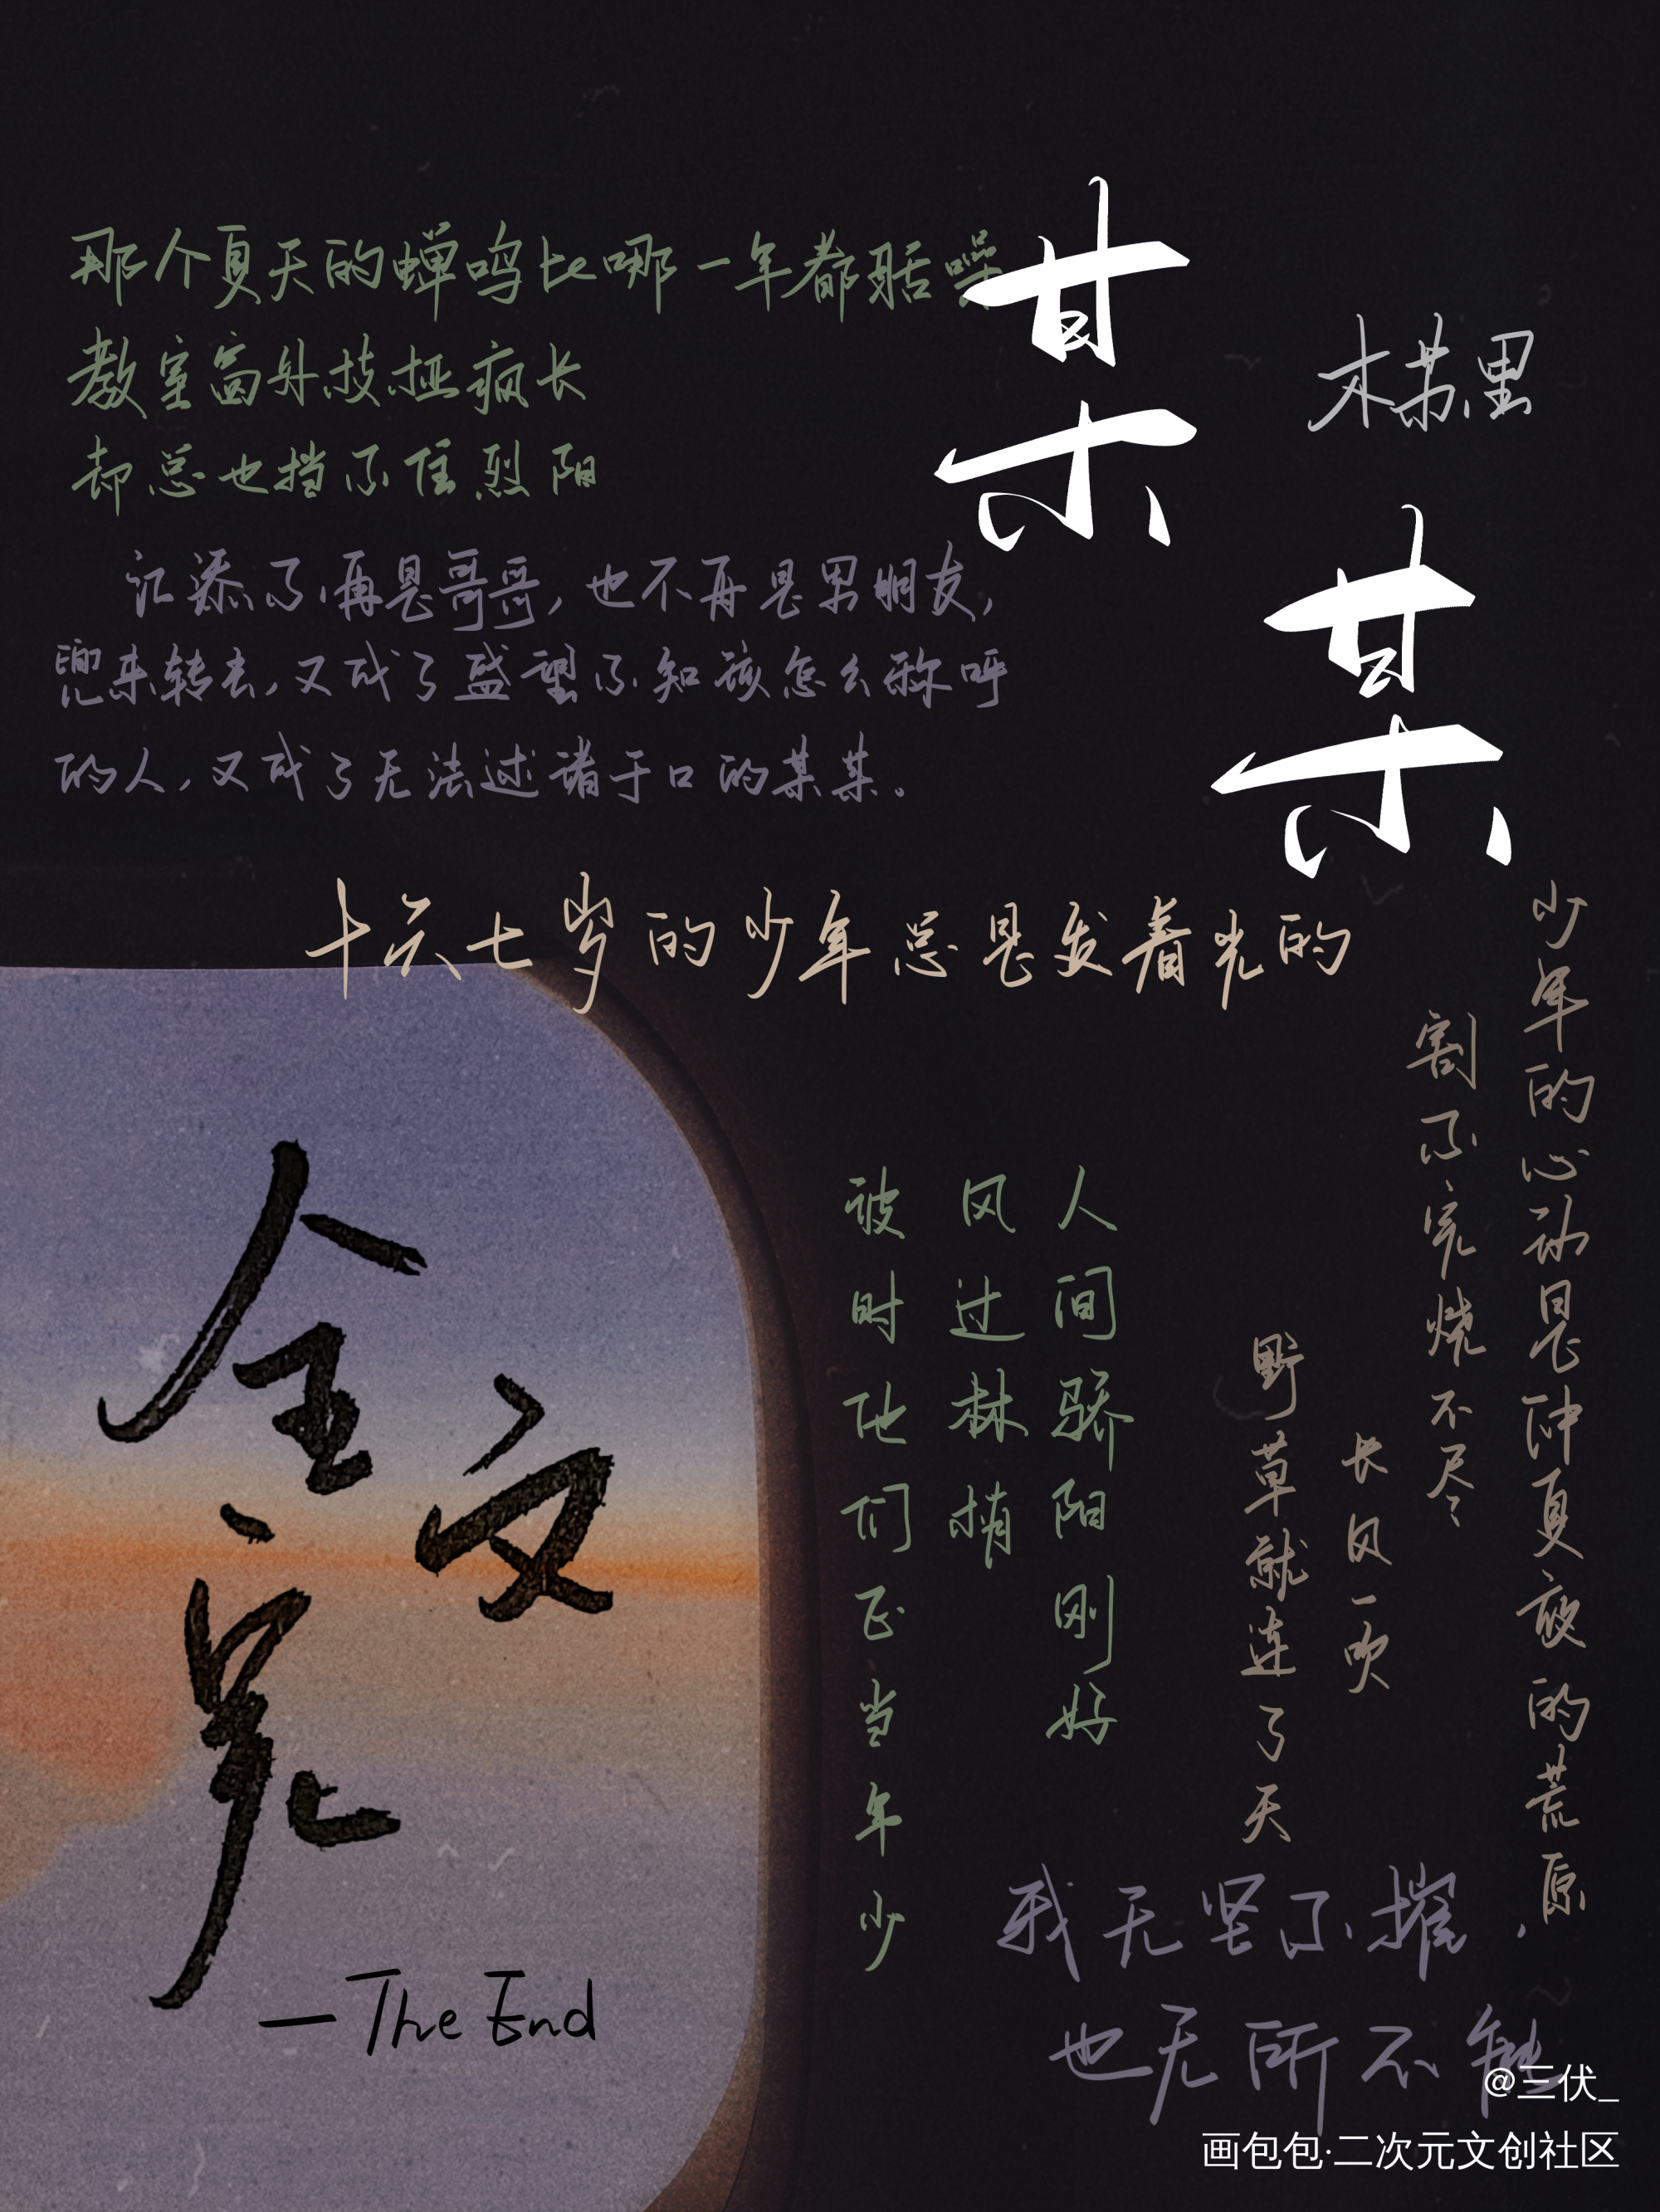 某某
木苏里
那个夏天的蝉鸣比哪一年都聒噪
教室窗外枝桠疯长
却总也挡不住烈阳
江添不再是哥哥，也不再是男朋友，
兜来转去，又成了盛望不知该怎么称呼
的人，又成了无法述诸于口的某某。
十六七岁的少年总是发着光的
少年的心动是仲夏夜的荒原
割不完烧不尽
长风一吹
野草就连了天
人间骄阳刚好
风过林梢
彼时他们正当年少
我无坚不摧，
也无所不能
全文完
—The End
@三伏_
画包包·二次元文创社区